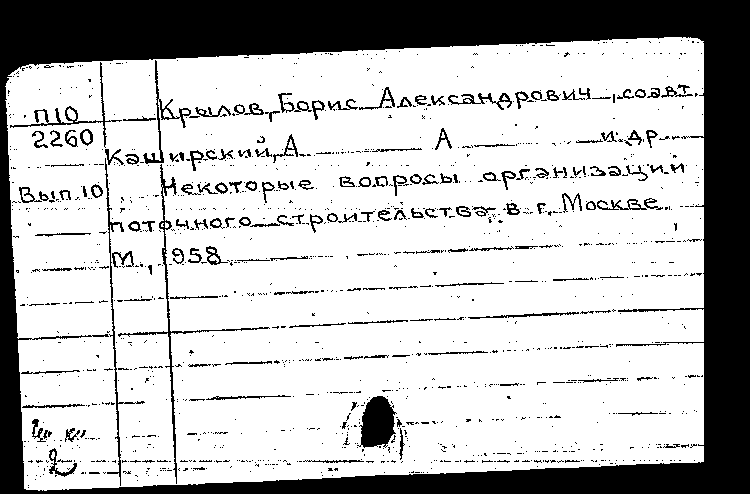 П10 Крылов, Борис Александрович, соавт.
2260 Каширский, А А и др
Вып. 10 Некоторые вопросы организации
поточного строительства в г. Москве.
М., 1958
2